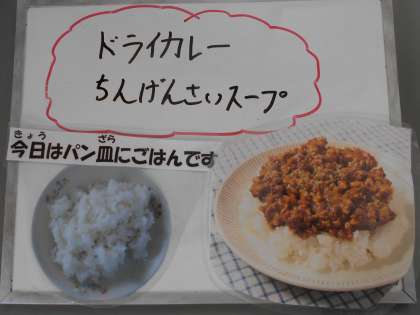 ドライカレー
ちんげんさいスープ
きょう ざら
今日はパン皿にごはんです